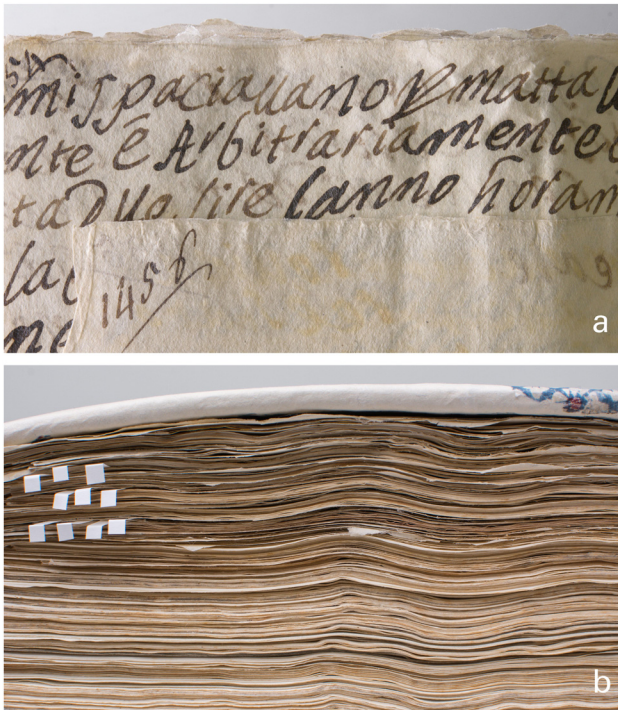 mi spaciallano p matta
nte è Arbitrariamente
ta Duo lire lanno horam
la
1456
ne
a
b